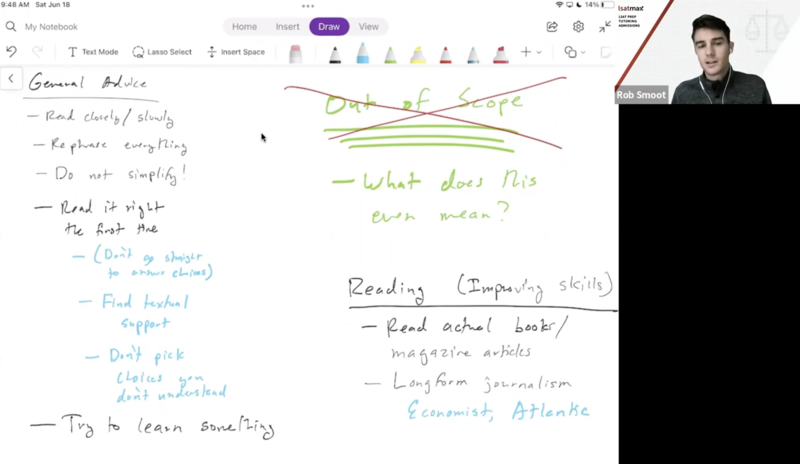 9:48 AM Sat Jun 18
14%
My Notebook
Home Insert Draw View
Text Mode Lasso Select Insert Space
lsatmax
LSAT PREP
TUTORING
ADMISSIONS
Rob Smoot
General Advice
— Read closely/slowly
— Rephrase everything
— Do not simplify!
— Read it right
the first time
— (Don't go straight
to answer choices)
— Find textual
support
— Don't pick
choices you
don't understand
— Try to learn something
Out of Scope
— What does this
even mean?
Reading (Improving skills)
— Read actual books/
magazine articles
— Longform journalism
Economist, Atlantic